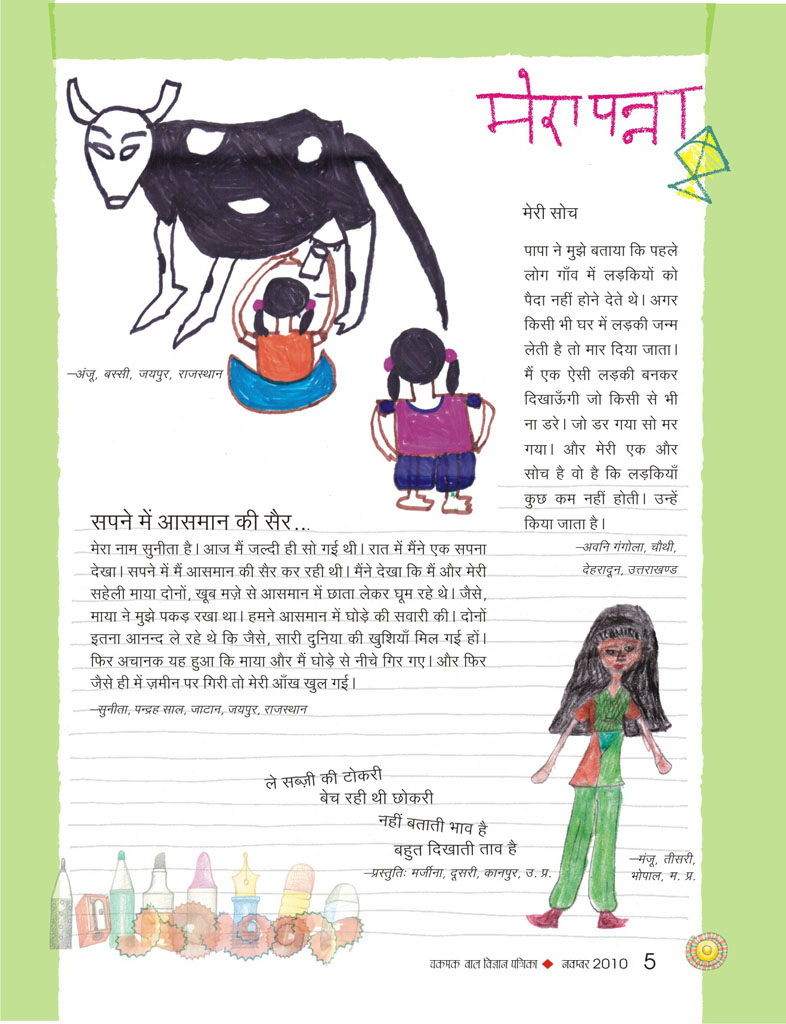 मेरा पन्ना
मेरी सोच
पापा ने मुझे बताया कि पहले
लोग गाँव में लड़कियों को
पैदा नहीं होने देते थे। अगर
किसी भी घर में लड़की जन्म
लेती है तो मार दिया जाता।
मैं एक ऐसी लड़की बनकर
दिखाऊँगी जो किसी से भी
ना डरे। जो डर गया सो मर
गया। और मेरी एक और
सोच है वो है कि लड़कियाँ
कुछ कम नहीं होती। उन्हें
किया जाता है।
–अवनि गंगोला, चौथी,
देहरादून, उत्तराखण्ड
–अंजू, बस्सी, जयपुर, राजस्थान
सपने में आसमान की सैर...
मेरा नाम सुनीता है। आज मैं जल्दी ही सो गई थी। रात में मैंने एक सपना
देखा। सपने में मैं आसमान की सैर कर रही थी। मैंने देखा कि मैं और मेरी
सहेली माया दोनों, खूब मज़े से आसमान में छाता लेकर घूम रहे थे। जैसे,
माया ने मुझे पकड़ रखा था। हमने आसमान में घोड़े की सवारी की। दोनों
इतना आनन्द ले रहे थे कि जैसे, सारी दुनिया की खुशियाँ मिल गई हों।
फिर अचानक यह हुआ कि माया और मैं घोड़े से नीचे गिर गए। और फिर
जैसे ही में ज़मीन पर गिरी तो मेरी आँख खुल गई।
–सुनीता, पन्द्रह साल, जाटान, जयपुर, राजस्थान
ले सब्ज़ी की टोकरी
बेच रही थी छोकरी
नहीं बताती भाव है
बहुत दिखाती ताव है
–प्रस्तुतिः मर्जीना, दूसरी, कानपुर, उ. प्र.
–मंजू, तीसरी,
भोपाल, म. प्र.
चकमक बाल विज्ञान पत्रिका ◆ नवम्बर 2010 5